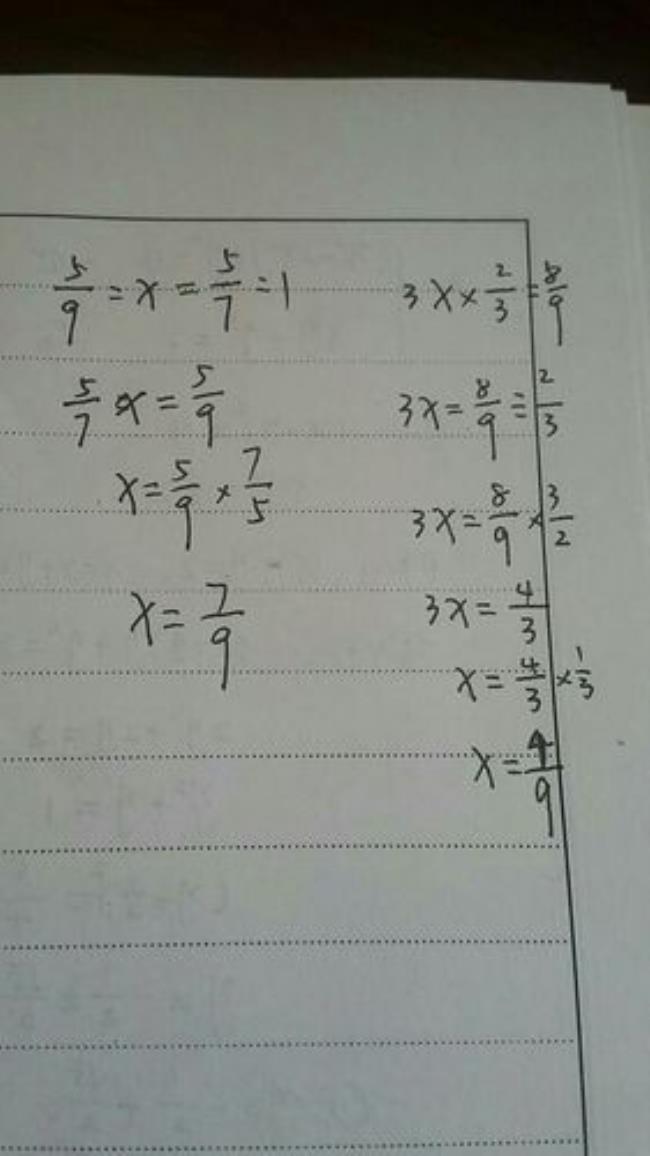 5/9 = x = 5/7 = 1
5/7 x = 5/9
x = 5/9 × 7/5
x = 7/9
3x × 2/3 = 8/9
3x = 8/9 ÷ 2/3
3x = 8/9 × 3/2
3x = 4/3
x = 4/3 × 1/3
x = 4/9